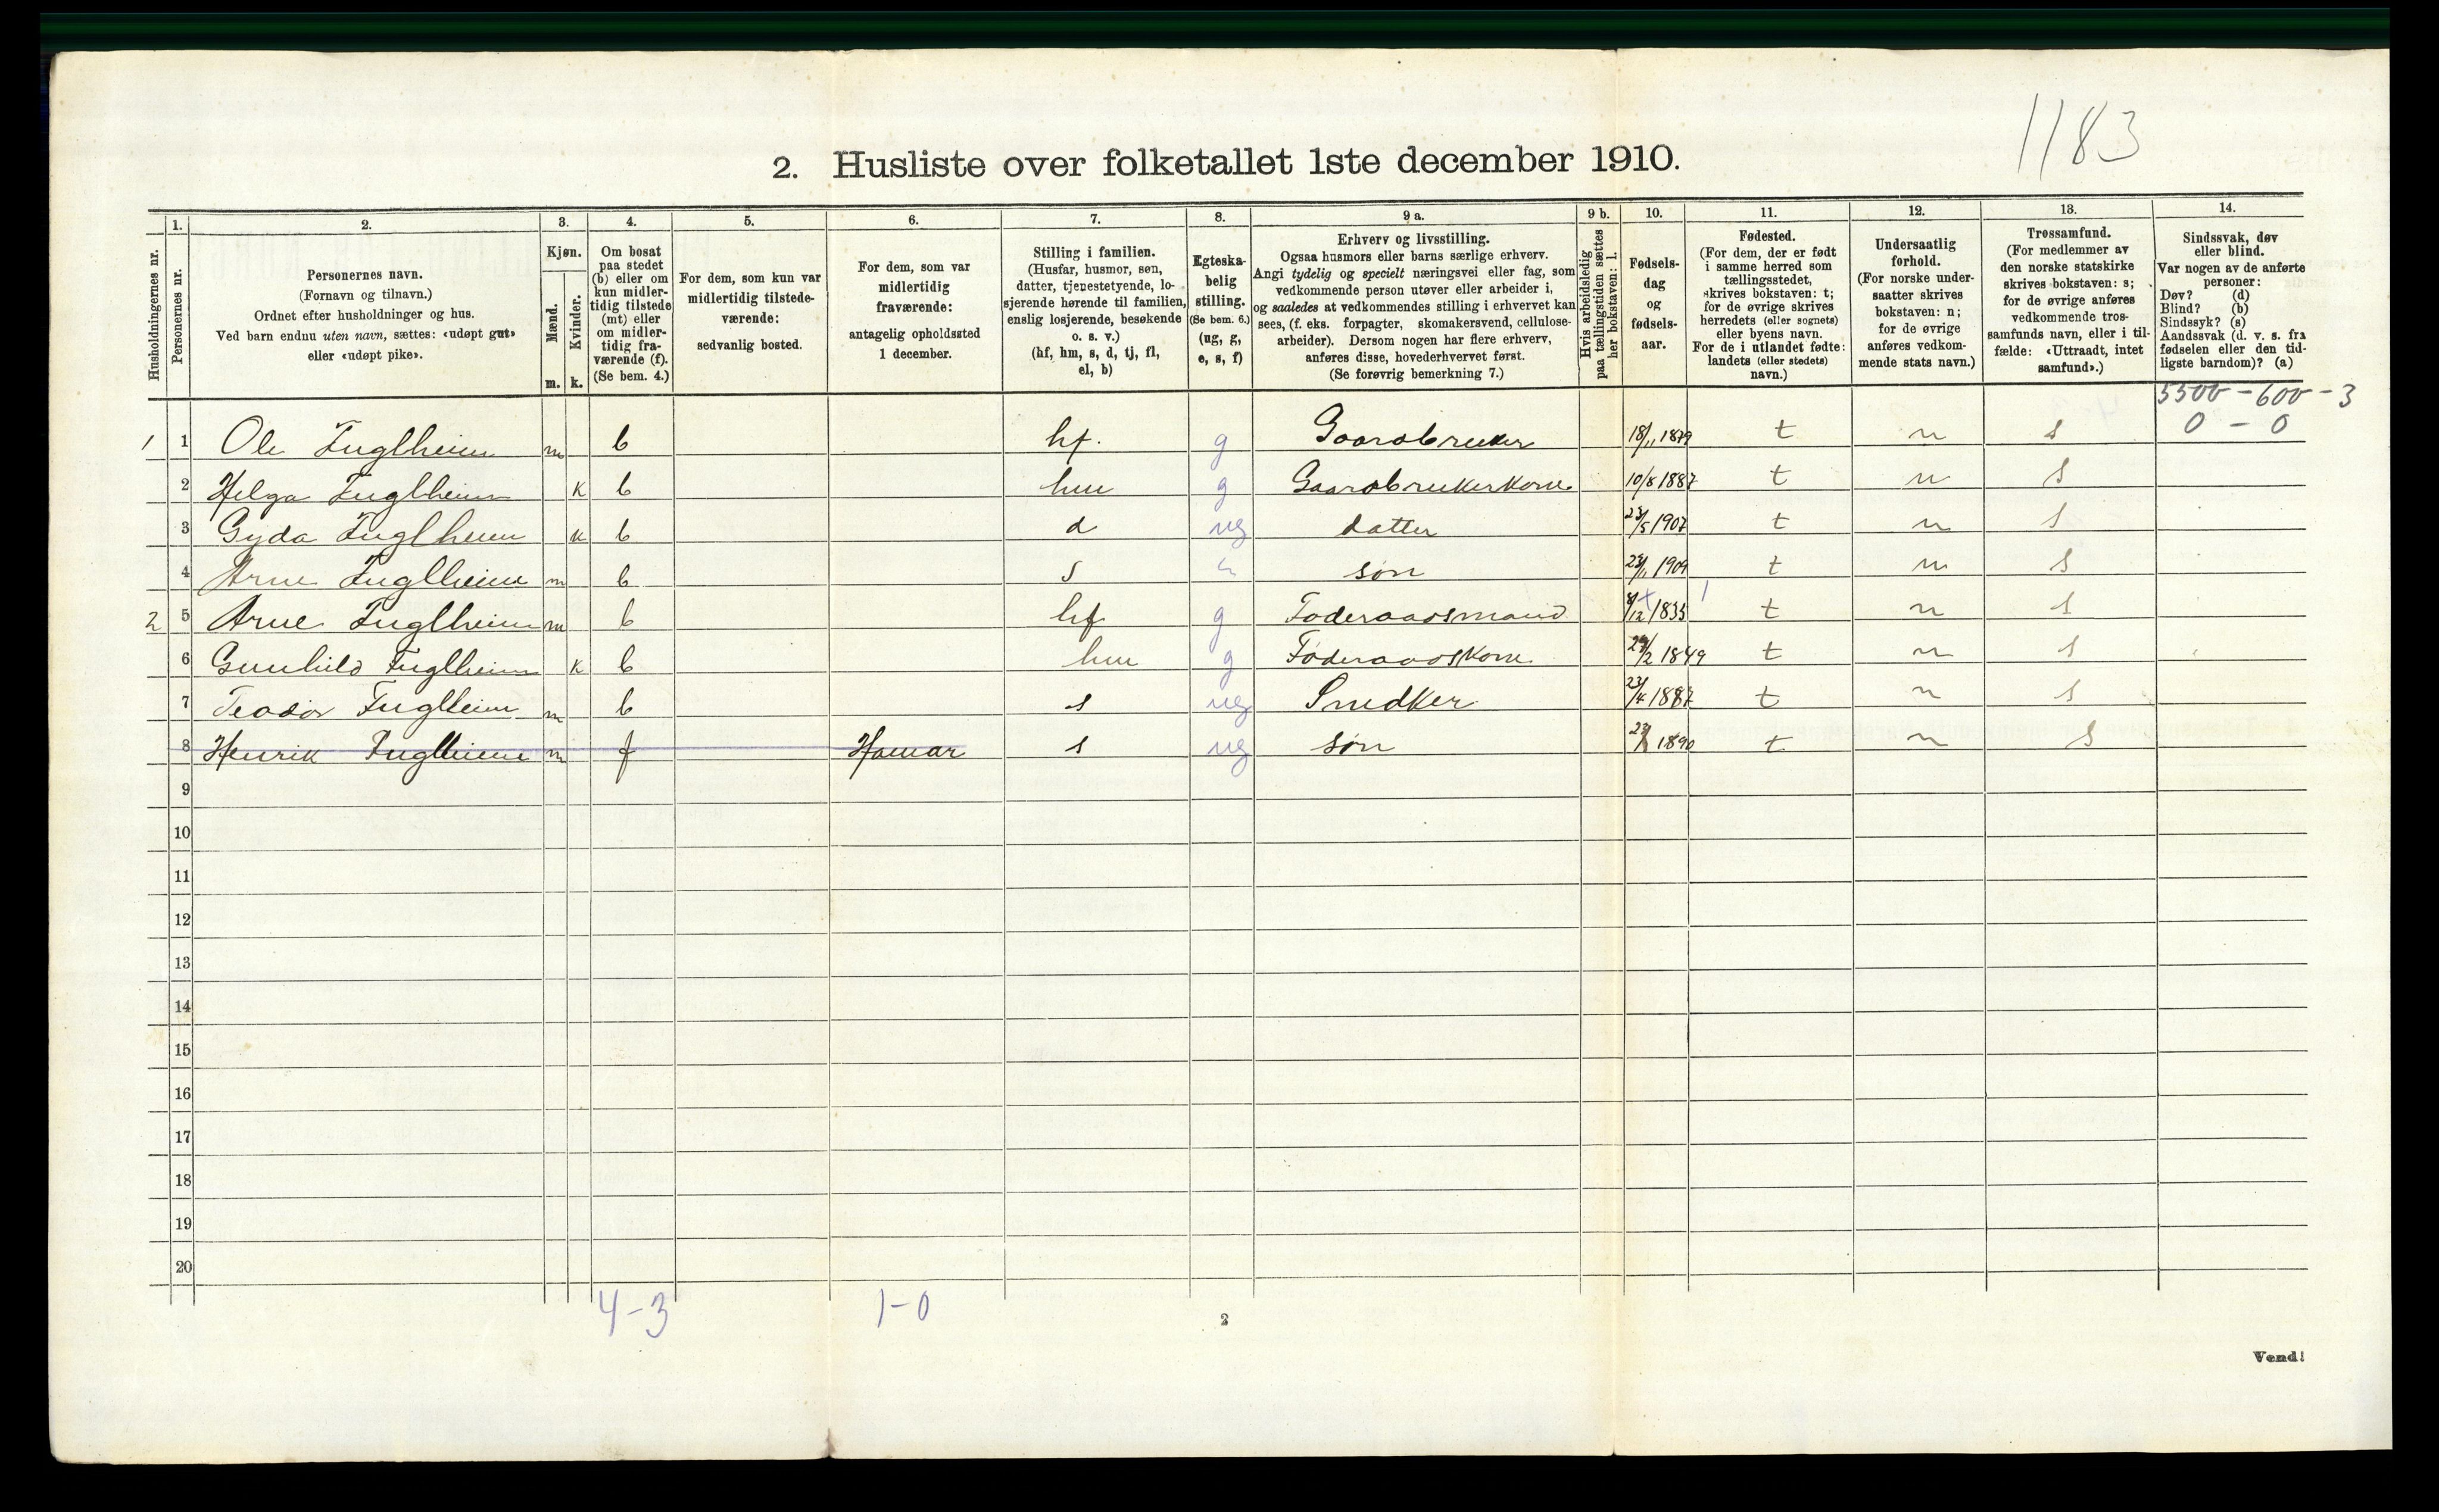 1183
2. Husliste over folketallet 1ste december 1910.
Husholdningernes nr.
1. Personernes nr.
2. Personernes navn.
(Fornavn og tilnavn.)
Ordnet efter husholdninger og hus.
Ved barn endnu uten navn, sættes: «udøpt gut»
eller «udøpt pike».
3. Kjøn.
Mænd. m.
Kvinder. k.
4. Om bosat
paa stedet
(b) eller om
kun midler-
tidig tilstede
(mt) eller
om midler-
tidig fra-
værende (f).
(Se bem. 4.)
5. For dem, som kun var
midlertidig tilstede-
værende:
sedvanlig bosted.
6. For dem, som var
midlertidig
fraværende:
antagelig opholdssted
1 december.
7. Stilling i familien.
(Husfar, husmor, søn,
datter, tjenestetyende, lo-
sjerende hørende til familien,
enslig losjerende, besøkende
o. s. v.)
(hf, hm, s, d, tj, fl,
el, b)
8. Egteska-
belig
stilling.
(Se bem. 6.)
(ug, g,
e, s, f)
9 a. Erhverv og livsstilling.
Ogsaa husmors eller barns særlige erhverv.
Angi tydelig og specielt næringsvei eller fag, som
vedkommende person utøver eller arbeider i,
og saaledes at vedkommendes stilling i erhvervet kan
sees, (f. eks. forpagter, skomakersvend, cellulose-
arbeider). Dersom nogen har flere erhverv,
anføres disse, hovederhvervet først.
(Se forøvrig bemerkning 7.)
9 b. Hvis arbeidsledig
paa tællingstiden sættes
her bokstaven: l.
10. Fødsels-
dag
og
fødsels-
aar.
11. Fødested.
(For dem, der er født
i samme herred som
tællingsstedet,
skrives bokstaven: t;
for de øvrige skrives
herredets (eller sognets)
eller byens navn.
For de i utlandet fødte:
landets (eller stedets)
navn.)
12. Undersaatlig
forhold.
(For norske under-
saatter skrives
bokstaven: n;
for de øvrige
anføres vedkom-
mende stats navn.)
13. Trossamfund.
(For medlemmer av
den norske statskirke
skrives bokstaven: s;
for de øvrige anføres
vedkommende tros-
samfunds navn, eller i til-
fælde: «Uttraadt, intet
samfund».)
14. Sindssvak, døv
eller blind.
Var nogen av de anførte
personer:
Døv? (d)
Blind? (b)
Sindssyk? (s)
Aandssvak (d. v. s. fra
fødselen eller den tid-
ligste barndom)? (a)
5500 - 600 - 3
0 - 0
1 1 Ole Fuglheim m b hf. g Gaardbruker 18/11 1879 t n s
2 Helga Fuglheim k b hm g Gaardbrukerkone 10/8 1887 t n s
3 Gyda Fuglheim k b d ug datter 1907 t n s
4 Arne Fuglheim m b s søn 1909 t n s
2 5 Arne Fuglheim m b hf g Føderaadsmand 8/12 1835 t n s
6 Gunhild Fuglheim k b hm g Føderaadskone 1849 t n s
7 Teodor Fuglheim m b s ug Snedker 23/4 1887 t n s
8 Henrik Fuglheim m f Hamar s ug søn 1890 t n s
9
10
11
12
13
14
15
16
17
18
19
20
4-3 1-0
2
Vend!